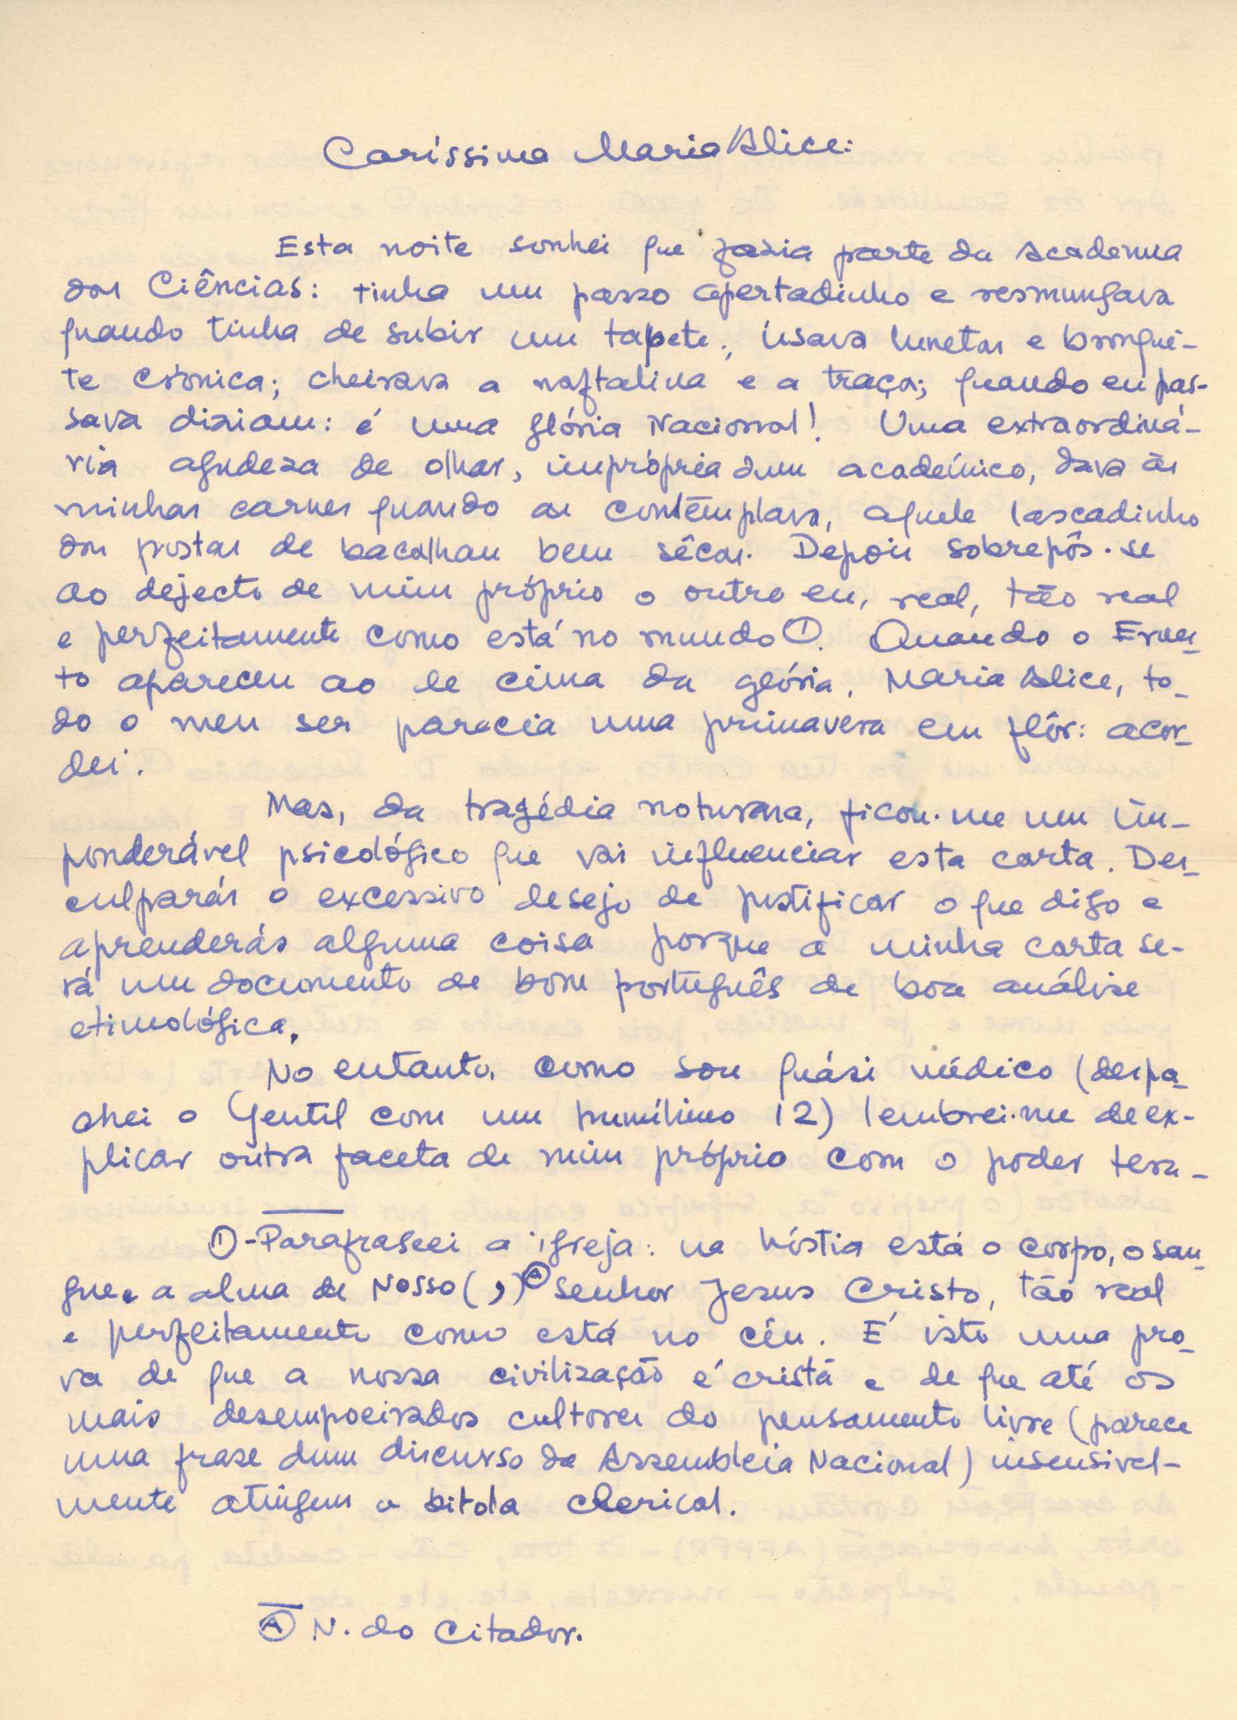 Caríssima Maria Alice:
Esta noite sonhei que fazia parte da Academia
das Ciências: tinha um passo apertadinho e resmungava
quando tinha de subir um tapete; usava lunetas e bronqui-
te crónica; cheirava a naftalina e a traça; quando eu pas-
sava diziam: é uma glória Nacional! Uma extraordiná-
ria agudeza de olhar, imprópria dum académico, dava às
minhas carnes quando as contemplava, aquele lascadinho
das postas de bacalhau bem sêcas. Depois sobrepôs-se
ao dejecto de mim próprio o outro eu, real, tão real
e perfeitamente como está no mundo ①. Quando o Ernes-
to apareceu ao de cima da glória, Maria Alice, to-
do o meu ser parecia uma primavera em flôr: acor-
dei.
Mas, da tragédia noturna, ficou-me um im-
ponderável psicológico que vai influenciar esta carta. Des-
culparás o excessivo desejo de justificar o que digo e
aprenderás alguma coisa porque a minha carta se-
rá um documento de bom português de boa análise
etimológica.
No entanto, como sou quási médico (despa-
chei o Gentil com um humílimo 12) lembrei-me de ex-
plicar outra faceta de mim próprio com o poder tera-
① - Parafraseei a igreja: na hóstia está o corpo, o san-
gue e a alma de Nosso (,) Ⓐ Senhor Jesus Cristo, tão real
e perfeitamente como está no céu. É isto uma pro-
va de que a nossa civilização é cristã e de que até os
mais desempoeirados cultores do pensamento livre (parece
uma frase dum discurso da Assembleia Nacional) insensivel-
mente atingem a bitola clerical.
Ⓐ N. do Citador.